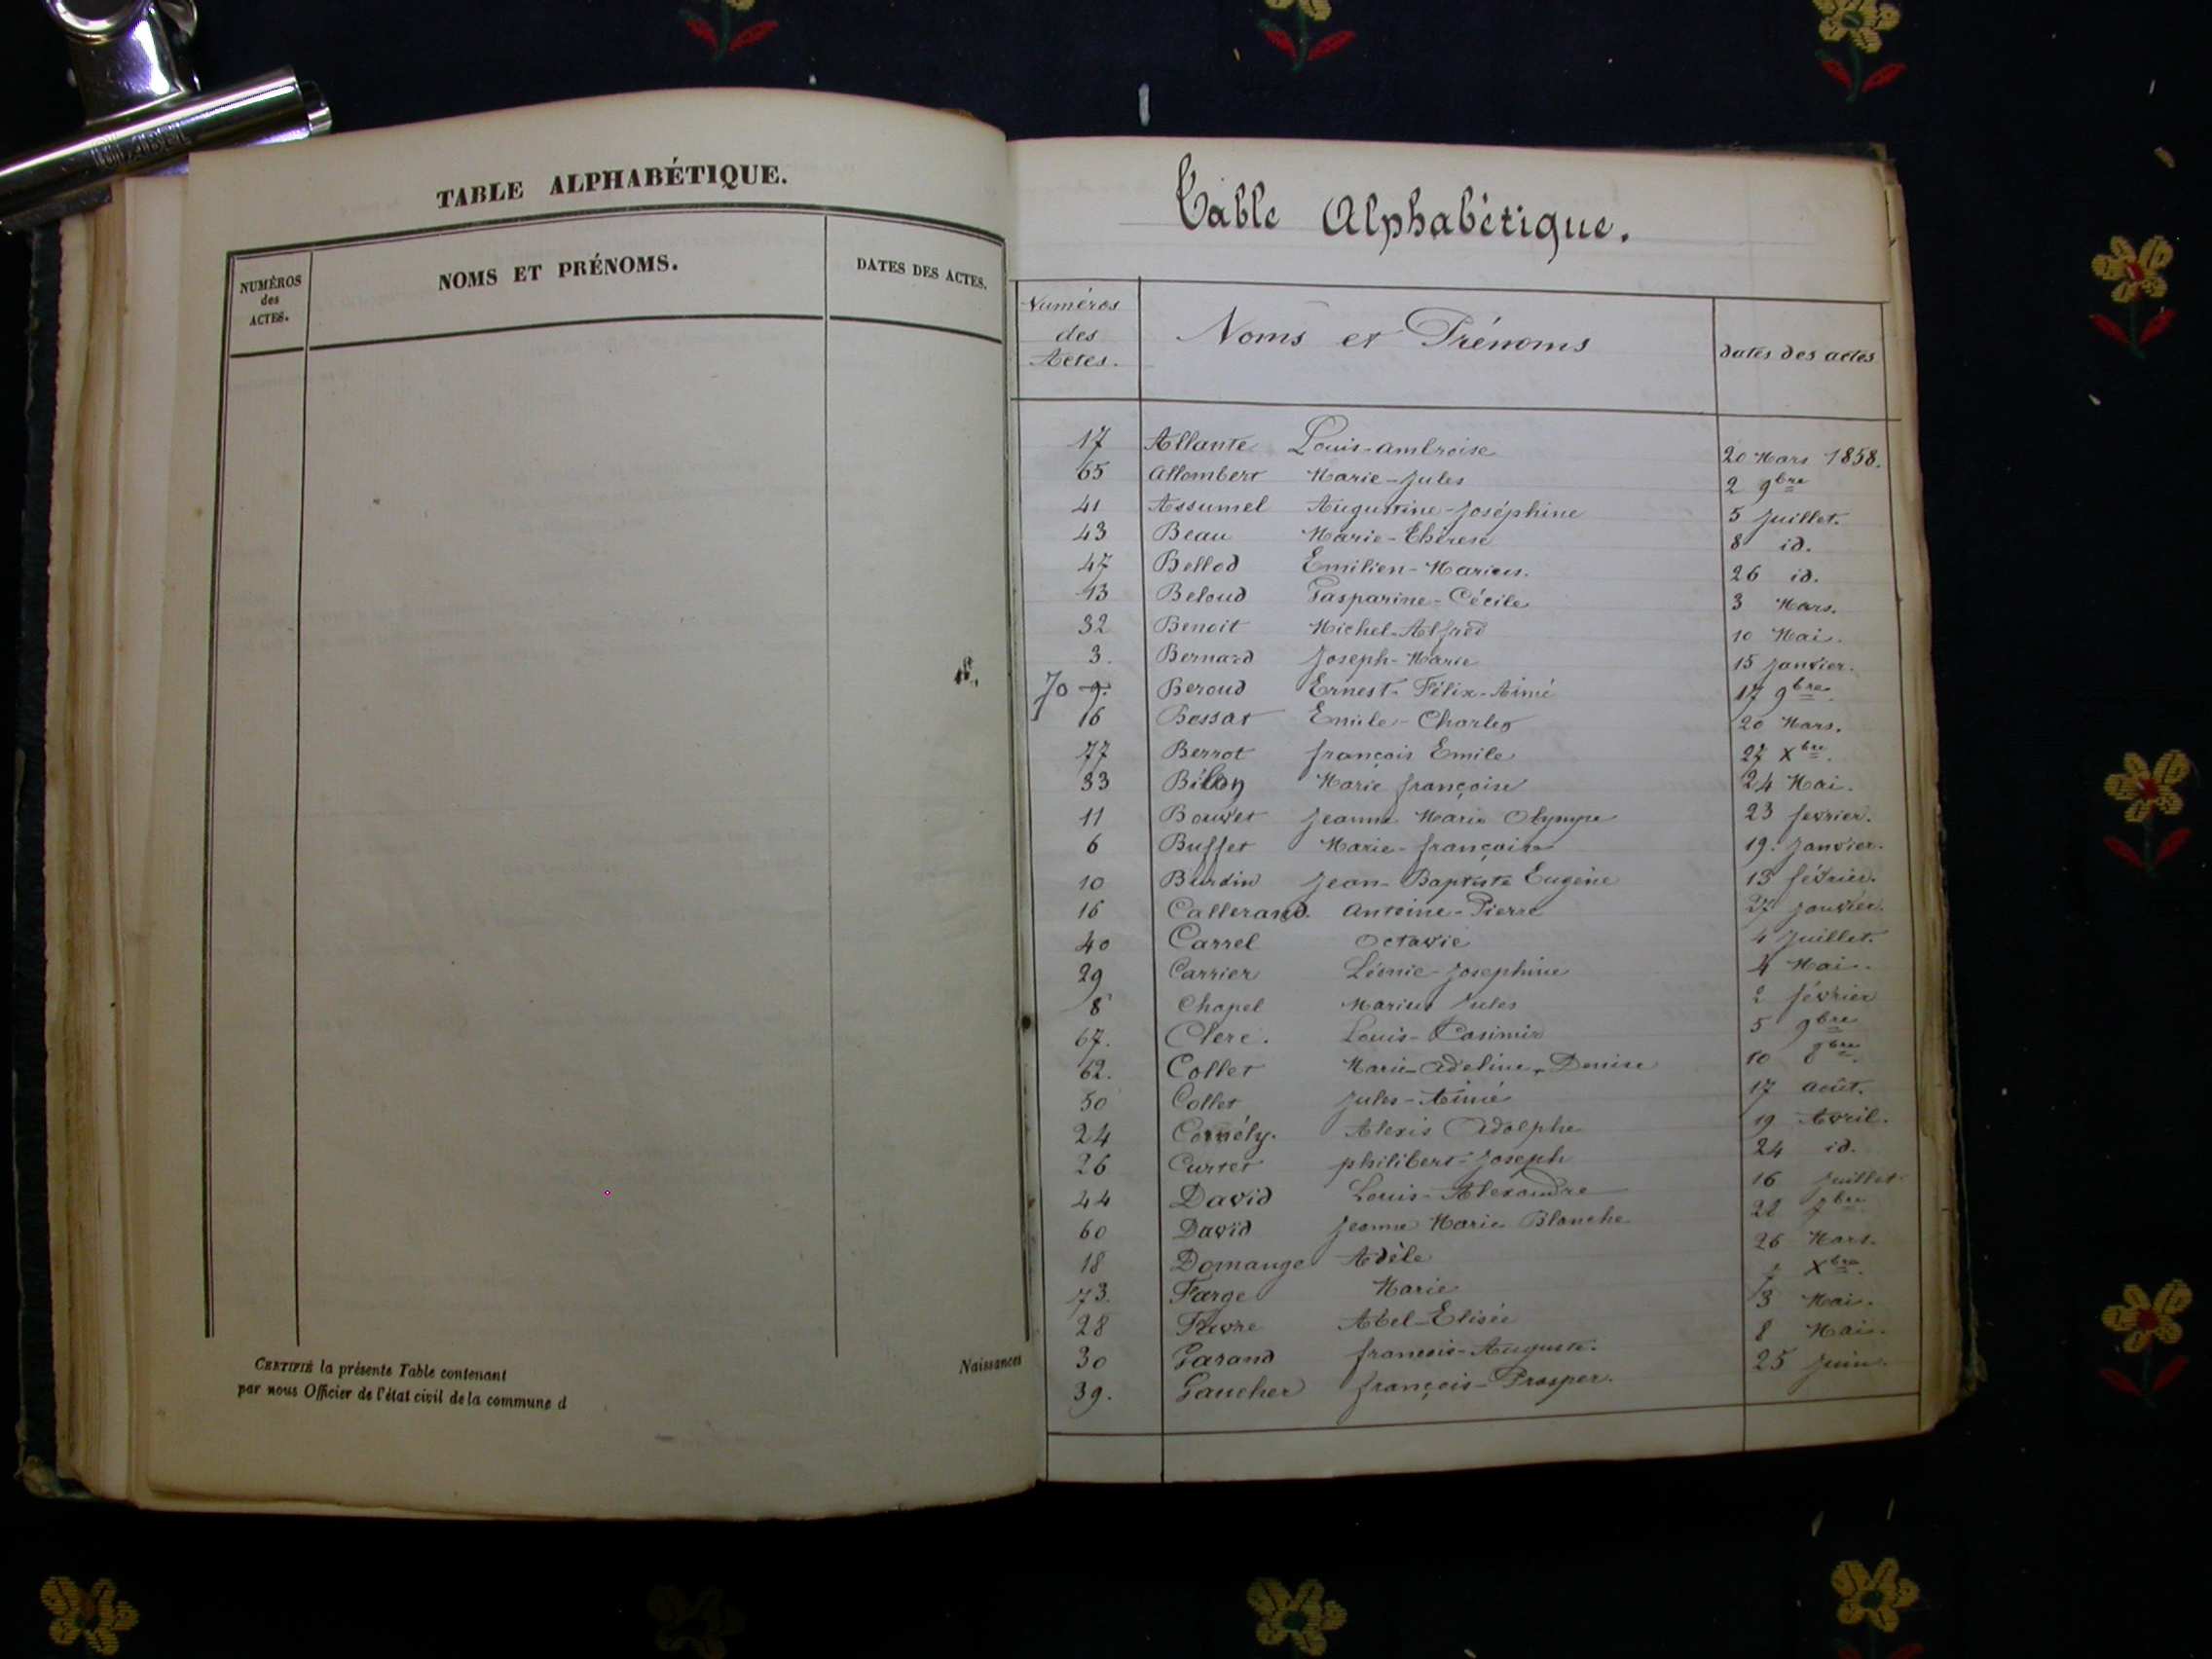 TABLE ALPHABÉTIQUE.
NUMÉROS
des
ACTES.
NOMS ET PRÉNOMS.
DATES DES ACTES.
CERTIFIÉ la présente Table contenant
Naissances
par nous Officier de l'état civil de la commune d
Table Alphabétique.
Numéros
des
Actes.
Noms et Prénoms
dates des actes
17 Allante Louis-ambroise 20 Mars 1858.
65 Allombert Marie-Jules 2 9bre
41 Assumel Augustine-Joséphine 5 Juillet.
43 Beau Marie-Thérese 8 id.
47 Bellod Emilien-Marius. 26 id.
13 Beloud Gasparine-Cécile 3 Mars.
32 Benoit Michel-Alfred 10 Mai.
3. Bernard Joseph-Marie 15 Janvier.
70 9. Beroud Ernest-Félix-Aimé 17 9bre.
16 Bessat Emile-Charles 20 Mars.
77 Berrot françois Emile 27 Xbre.
33 Marie françoise 24 Mai.
11 Bouvet Jeanne Marie Olympe 23 fevrier.
6 Buffet Marie-françoise 19. Janvier.
10 Burdin Jean-Baptiste Eugène 13 février.
16 Callerand. Antoine-Pierre 27 Janvier.
40 Carrel Octavie 4 Juillet.
29 Carrier Léonie-Josephine 4 Mai.
8 Chapel Marius Jules 2 février
67. Clerc. Louis-Casimir 5 9bre
62. Collet Marie-Adeline-Denise 10 8bre.
50 Collet Jules-Aimé 17 août.
24 Cornély. Alexis Adolphe 19 Avril.
26 Curtet philibert-Joseph 24 id.
44 David Louis-Alexandre 16 Juillet
60 David Jeanne Marie Blanche 22 7bre
18 Domange Adèle 26 Mars.
73. Farge Marie Xbre.
28 Favre Abel-Elisée 3 Mai.
30 Garand francois-Auguste. 8 Mai.
39. Gaucher françois-Prosper. 25 Juin.